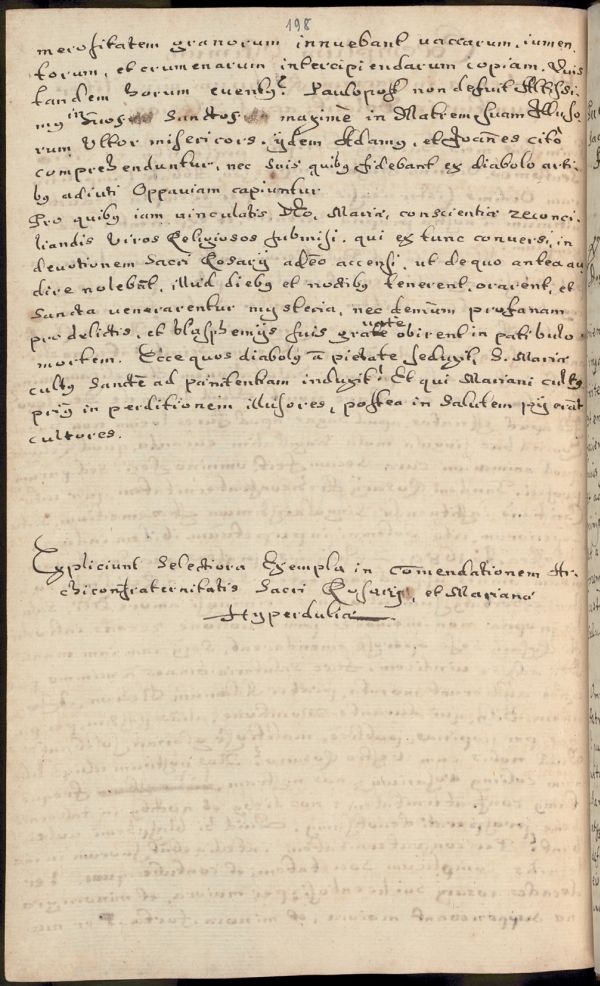 198
merositatem granorum innuebant vaccarum, iumen
torum, et crumenarum intercipiendarum copiam. Quis
tandem horum eventus? Paulo post non defuit Altissi:
mus in suos Sanctos maximè in Matrem suam Illuso,
rum Vltor misericors. ijdem Adamus, et Joannes citò
comprehenduntur, nec suis quibus fidebant ex diabolo arti,
bus adiuti Oppaviam capiuntur
Pro quibus iam vinculatis Deo, Mariæ, conscientiæ reconci,
liandis Viros Religiosos submisi. qui ex tunc conversi, in
devotionem Sacri Rosarij adeò accensi, ut de quo antea au
dire nolebāt, illud diebus et noctibus tenerent, orarent, et
Sancta venerarentur mysteria, nec demum profanam
pro delictis, et blasphemijs suis grate obirent in patibulo
mortem. Ecce quos diabolus à pietate seduxit, S. Mariæ
cultus Sanctè ad pænitentiam induxit! Et qui Mariani cultus
prius in perditionem illusores, postea in Salutem pij erāt
cultores.
Expliciunt Selectiora Exempla in Comendationem Ar,
chiconfraternitatis Sacri Rosarij, et Marianæ
Hyperduliæ